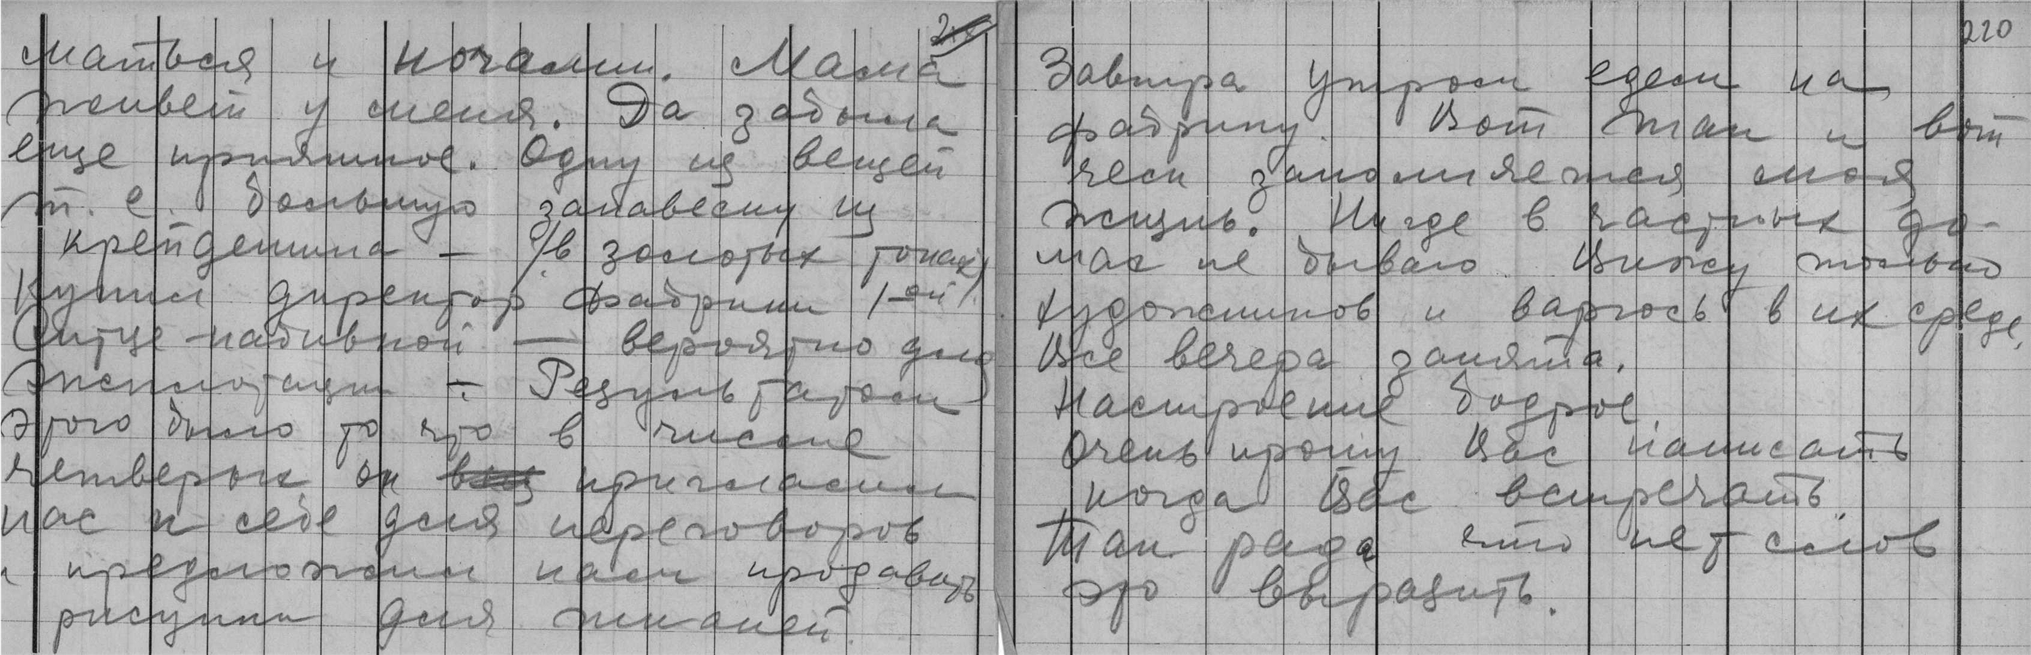 маться и ночами. Мама
живет у меня. Да забыла
еще приятное. Одну из вещей
т. е. большую занавеску из
крепдешина — (в золотых тонах)
купил директор фабрики 1-ой
Ситце-набивной — вероятно для
эксплотации — Результатом
этого было то что в
четверьг он пригласил
нас к себе для переговоров
и предложил нам продавать
рисунки для тканей.
220
Завтра утром едем на
фабрику. Вот так и вот
чем заполняется моя
жизнь. Нигде в частных до-
мах не бываю Вижу только
художников и варюсь в их среде,
Все вечера занята.
Настроение бодрое
Очень прошу Вас написать
когда Вас встречать.
Так рада что нет слов
это выразить.